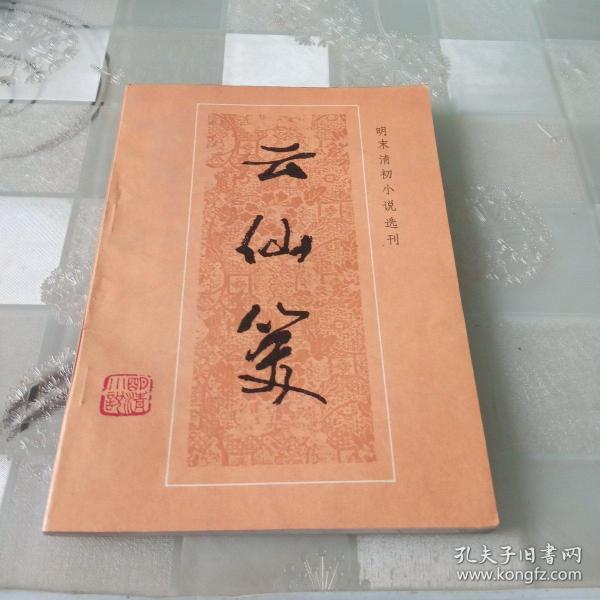 明末清初小说选刊
云仙笑
明清
小说
孔夫子旧书网
www.kongfz.com